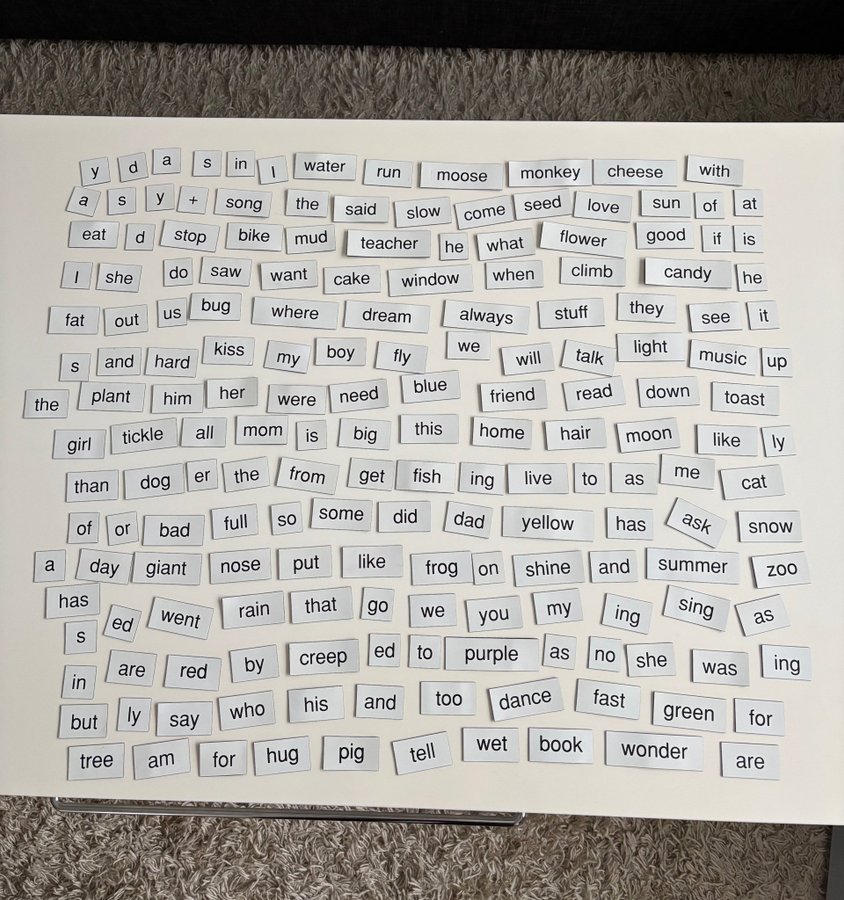 y d a s in I water run moose monkey cheese with
a s y + song the said slow come seed love sun of at
eat d stop bike mud teacher he what flower good if is
I she do saw want cake window when climb candy he
fat out us bug where dream always stuff they see it
s and hard kiss my boy fly we will talk light music up
the plant him her were need blue friend read down toast
girl tickle all mom is big this home hair moon like ly
than dog er the from get fish ing live to as me cat
of or bad full so some did dad yellow has ask snow
a day giant nose put like frog on shine and summer zoo
has ed went rain that go we you my ing sing as
s in are red by creep ed to purple as no she was ing
but ly say who his and too dance fast green for
tree am for hug pig tell wet book wonder are